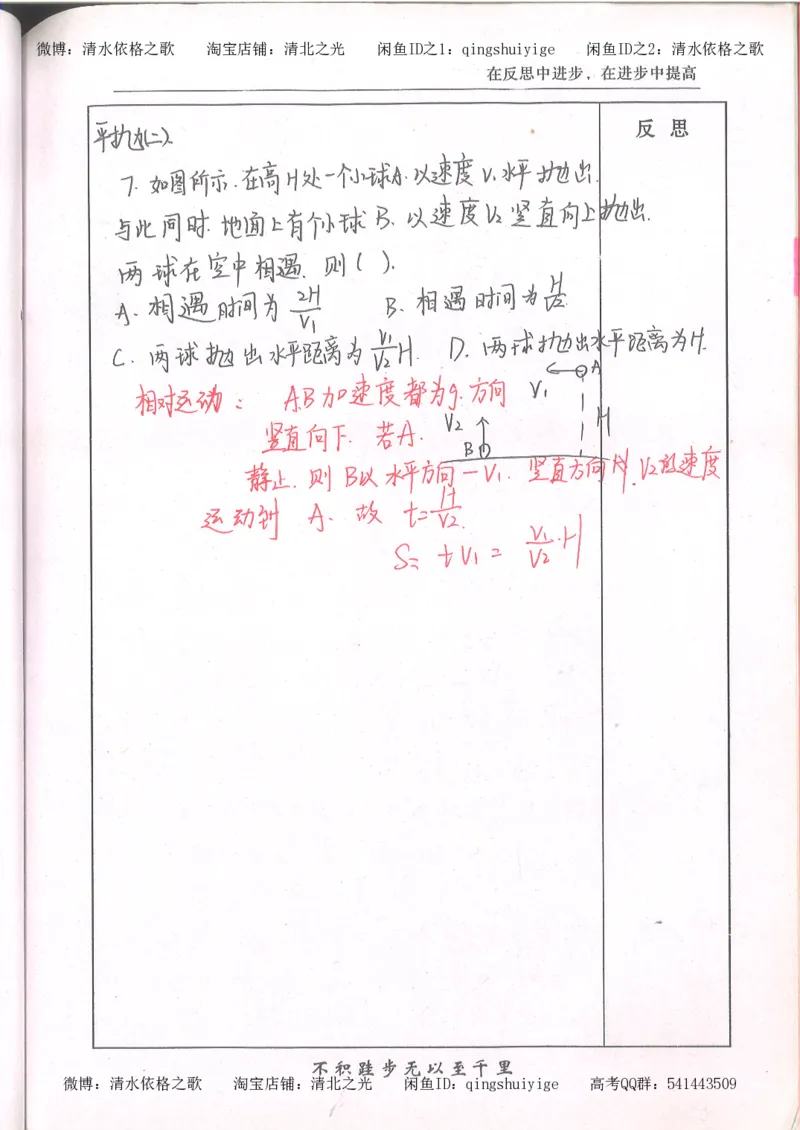 微博：清水依格之歌 淘宝店铺：清北之光 闲鱼ID之1：qingshuiyige 闲鱼ID之2：清水依格之歌
在反思中进步，在进步中提高
反思
平抛(二)
7. 如图所示.在高H处一个小球A.以速度V₁水平抛出.
与此同时.地面上有个小球B.以速度V₂竖直向上抛出.
两球在空中相遇.则( ).
A.相遇时间为 2H/V₁ B.相遇时间为 H/V₂
C.两球抛出水平距离为 V₁/V₂ H. D.两球抛出水平距离为H.
V₁ A
H
V₂
B
相对运动： A.B加速度都为g.方向
竖直向下. 若A.
静止.则B以水平方向-V₁.竖直方向 V₂的速度
运动到A. 故 t=H/V₂.
S= tV₁ = V₁/V₂·H
不积跬步无以至千里
微博：清水依格之歌 淘宝店铺：清北之光 闲鱼ID：qingshuiyige 高考QQ群：541443509